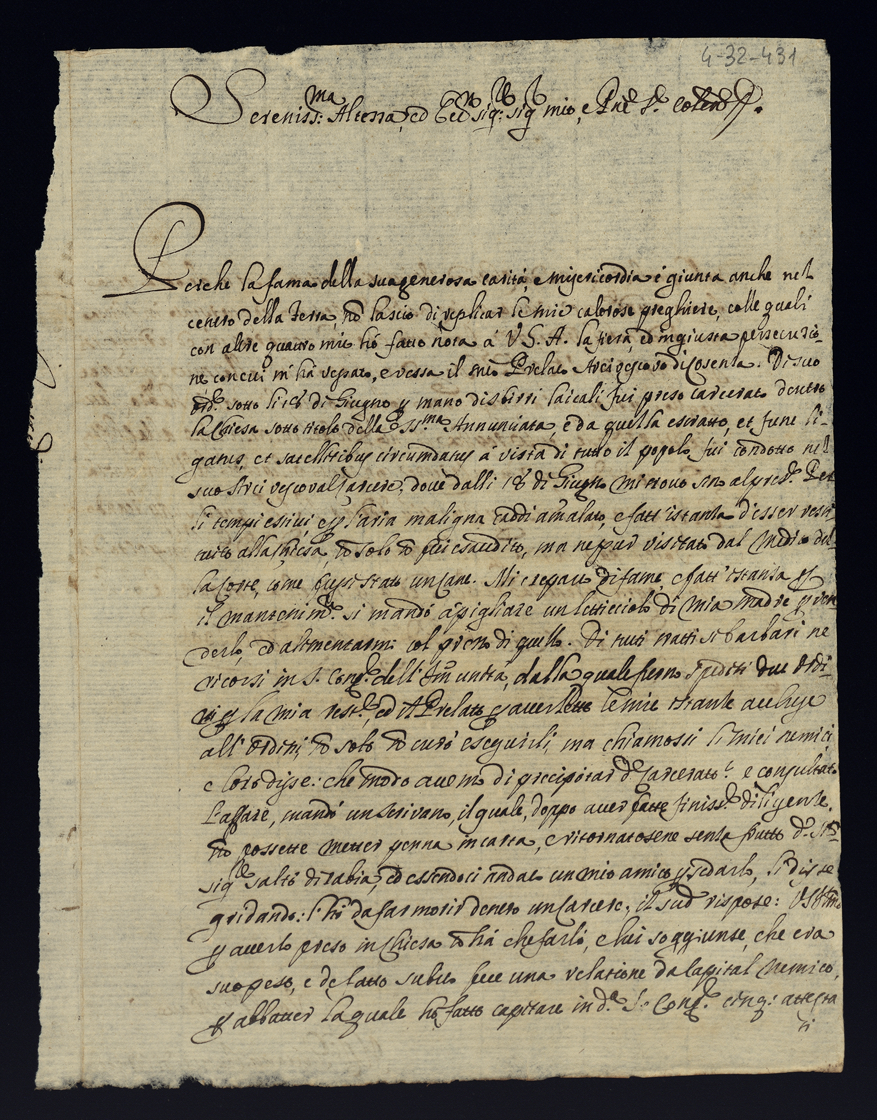 4-32-431
Sereniss:ma Altezza, ed Ecc.mo Sig.r Sig.r mio, e P.ne S.r Col.mo
Perche la fama della sua generosa carità, e misericordia è giunta anche nel
centro della Terra, nõ lascio di replicar le mie calorose preghiere, colle quali
con altre quattro mie hò fatto nota à V. S. A. la fiera, ed ingiusta persecutio-
ne con cui m'hà vessato, e vessa il mio Prelato Arcivescovo di Cosenza. Di suo
ord.e sotto li 18 di Giugno p mano di sbirri laicali fui preso carcerato dentro
la Chiesa sotto titolo della SS.ma Annunciata, e da quella estratto, et fune li-
gatus, et satellitibus circumdatus à vista di tutto il popolo fui condotto nel
suo Arcivescoval Carcere, dove dalli 18 di Giugno mi trovo sino al pres.e Per
li tempi estivi e p l'aria maligna caddi amalato, e fatt'istanza d'esser resti-
tuito alla chiesa, nõ solo nõ fui esaudito, ma ne pur visitato dal Medico del
la Corte, come fussi stato un cane. Mi crepava di fame, e fatt'istanza p
il mantenim.to si mandò à pigliare un letticciolo di mia madre p ven
derlo, ed alimentarmi col prezzo di quello. Di tutti tratti si barbari ne
ricorsi in S. Cong.e dell'Imunità, dalla quale furno spediti due Ordi-
ni p la mia rest.e, ed il Prelato p haver le mie istanze
all'Ordini, nõ solo nõ curò eseguirli, ma chiamossi li miei nemici
e loro disse: che modo avemo di precipitar d.o Carcerato? e consultato
l'affare, mandò un scrivano, il quale, doppo aver fatte finiss.e diligenze,
nõ possette metter penna in carta, e ritornatosene senza frutto d.o
sig.re saltò di rabia, ed essendoci andato un mio amico p sedarlo, li disse
gridando: l'hò da far morir dentro un Carcere, il sud.o rispose:
p averlo preso in Chiesa nõ hà che farli, e lui soggiunse, che era
suo peso, e de facto subito fece una relatione da Capital Nemico,
p abbatter la quale hò fatto capitare in d.a S. Cong.e cinq: attesta
ti